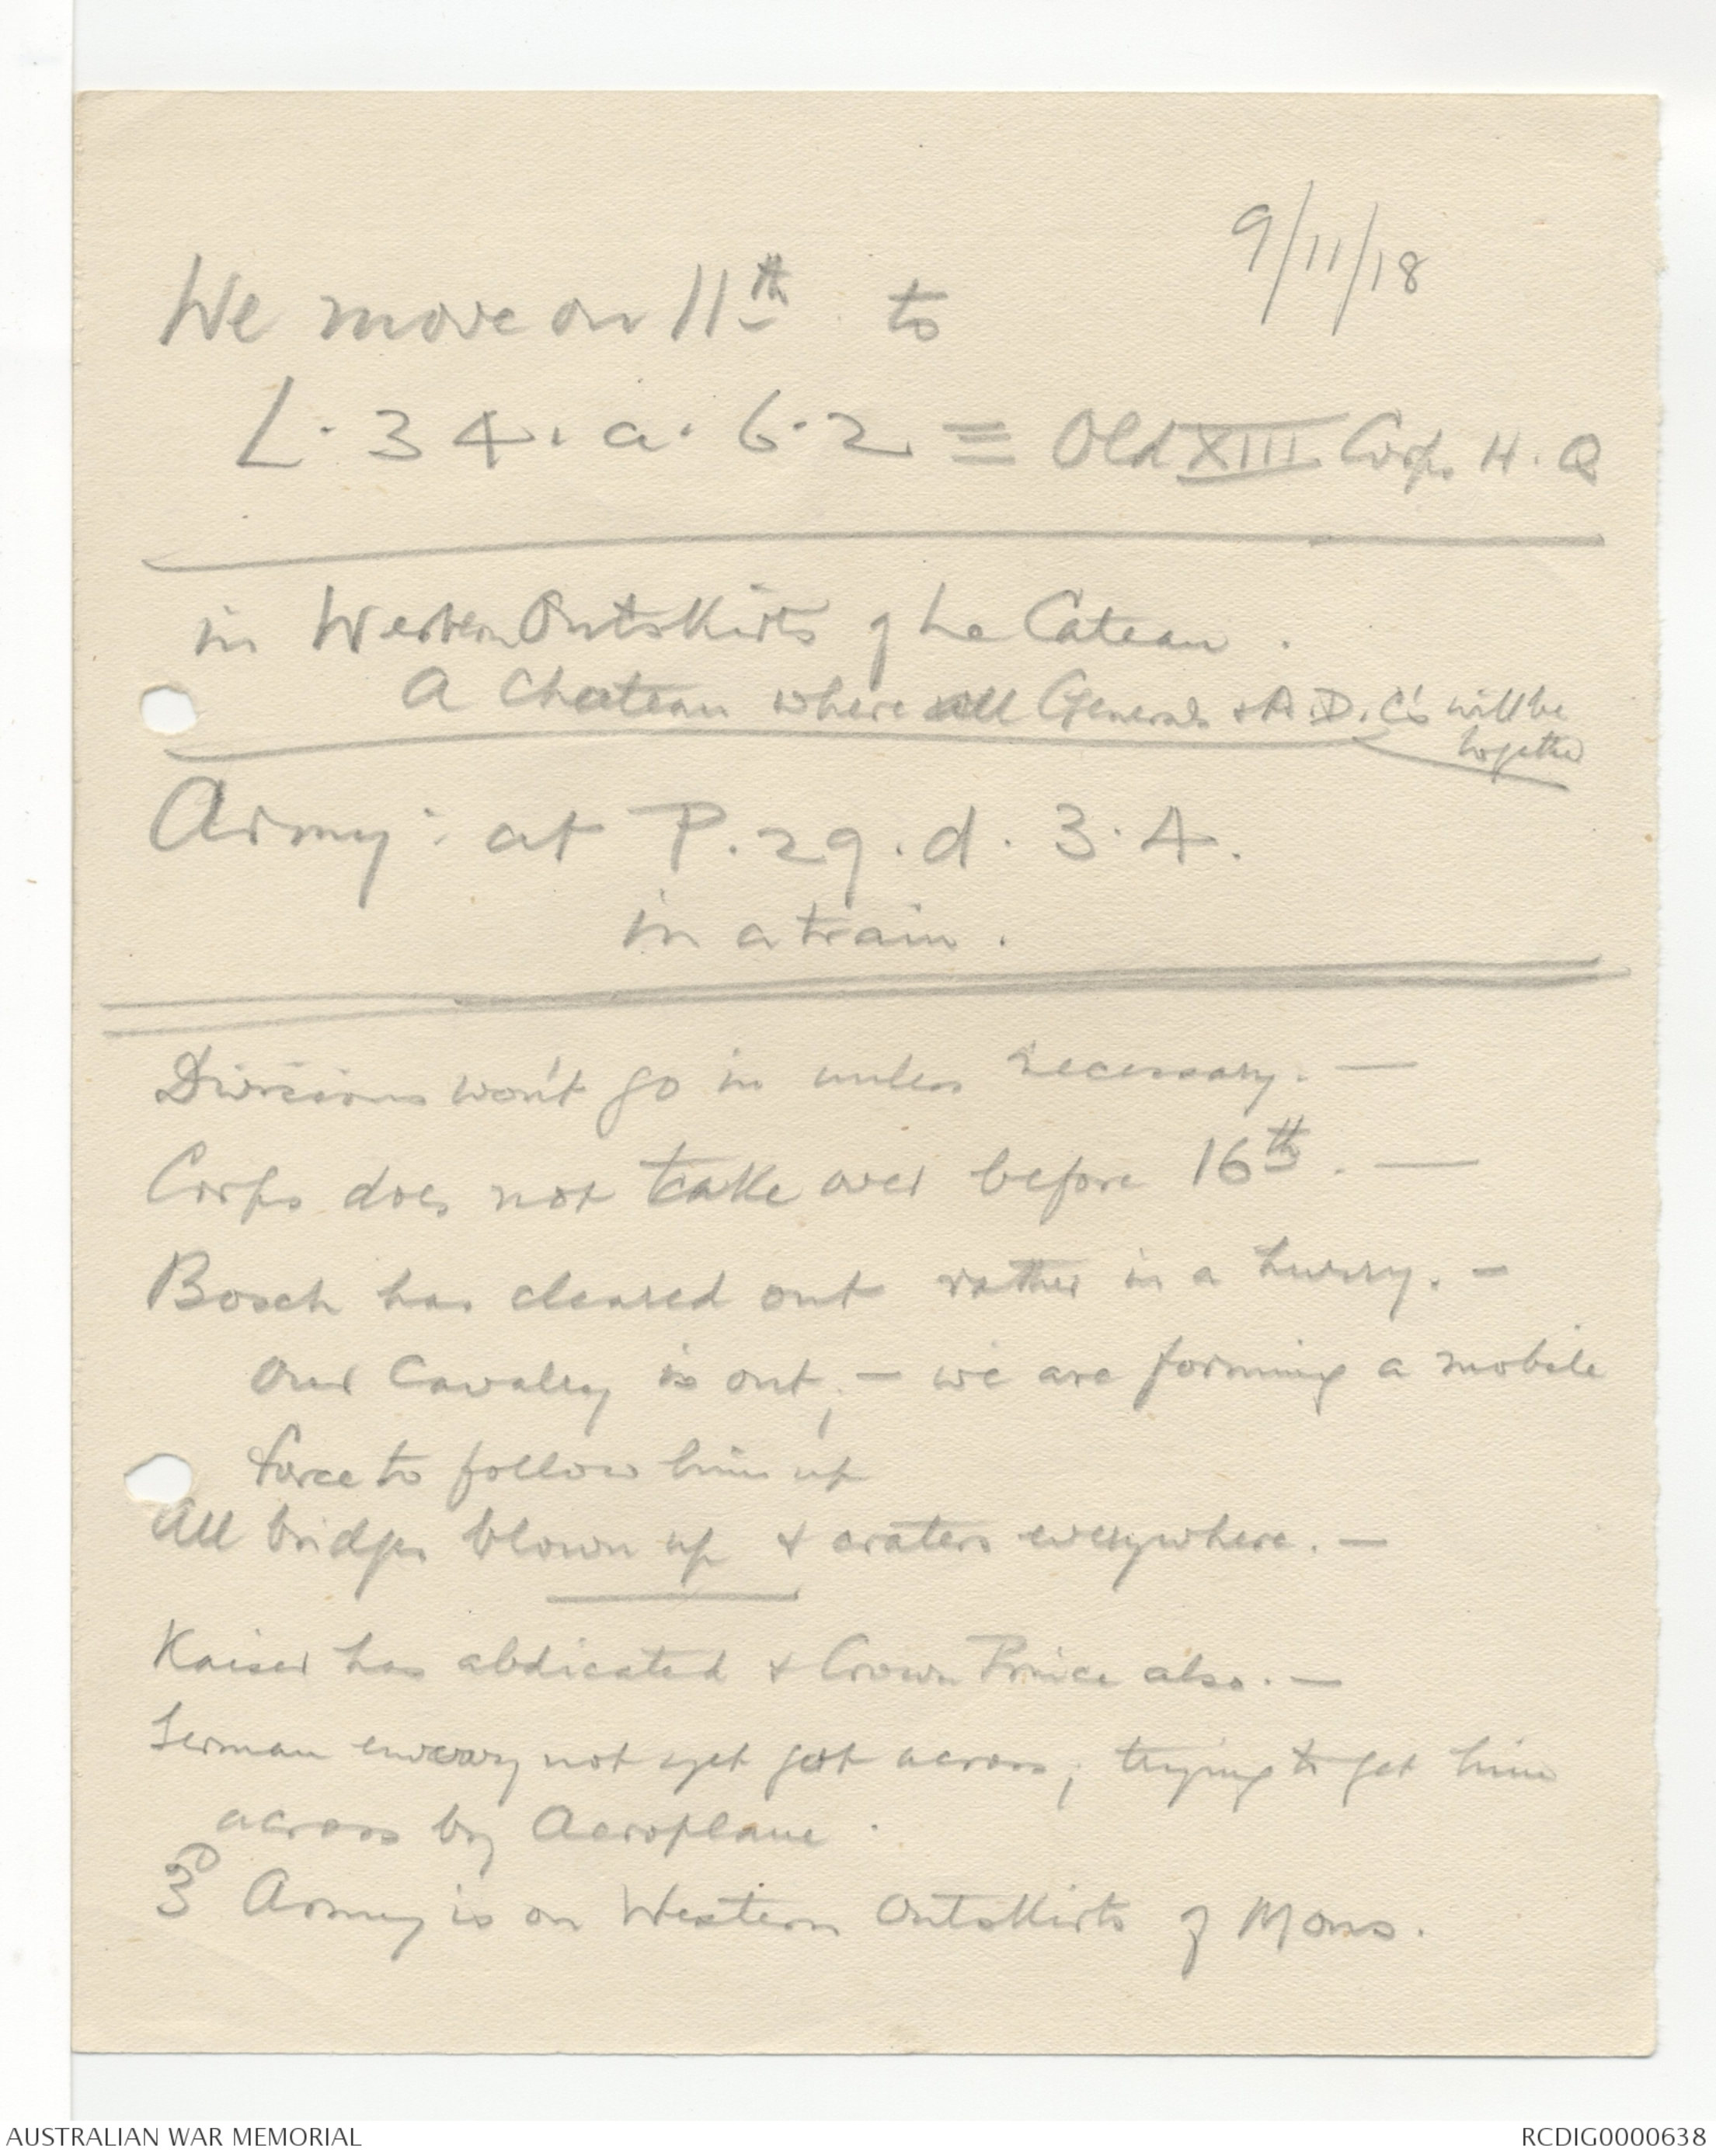 9/11/18
We move on 11th to
L. 34. a. 6.2 ≡ Old XIII Corps H.Q
in Western Outskirts of Le Cateau.
A Chateau where all Generals & A.D.C's will be
together
Army: at P.29.d.3.4.
in a train.
Divisions won't go in unless necessary. —
Corps does not take over before 16th. —
Bosch has cleared out rather in a hurry. —
Our Cavalry is out; — we are forming a mobile
force to follow him up
All bridges blown up & craters everywhere. —
Kaiser has abdicated & Crown Prince also. —
German envoy not yet got across; trying to get him
across by Aeroplane.
3D Army is on Western Outskirts of Mons.
AUSTRALIAN WAR MEMORIAL
RCDIG0000638